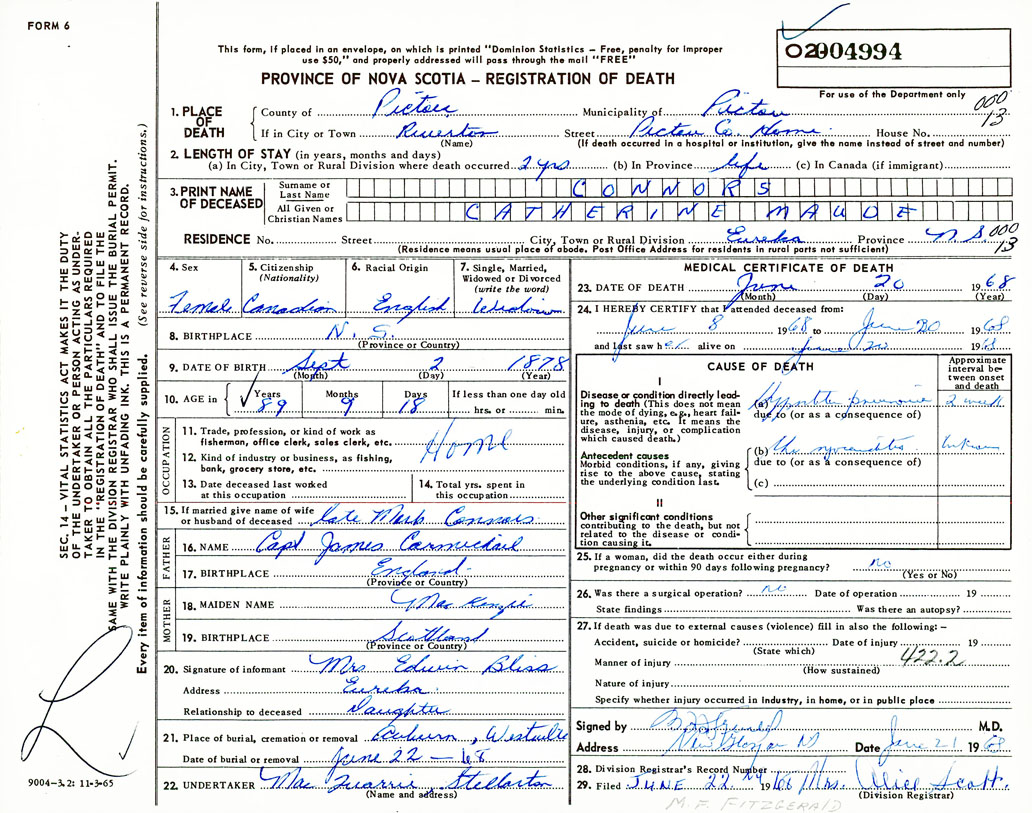 FORM 6
This form, if placed in an envelope, on which is printed "Dominion Statistics – Free, penalty for improper
use $50," and properly addressed will pass through the mail "FREE"
PROVINCE OF NOVA SCOTIA – REGISTRATION OF DEATH
02 004994
For use of the Department only
000
13
1. PLACE OF DEATH
County of Pictou Municipality of Pictou
If in City or Town Riverton Street Pictou Co. Home House No.
(Name) (If death occurred in a hospital or institution, give the name instead of street and number)
2. LENGTH OF STAY (in years, months and days)
(a) In City, Town or Rural Division where death occurred 2 yrs (b) In Province life (c) In Canada (if immigrant)
3. PRINT NAME OF DECEASED
Surname or Last Name CONNORS
All Given or Christian Names CATHERINE MAUDE
RESIDENCE No. Street City, Town or Rural Division Eureka Province N.S. 000
13
(Residence means usual place of abode. Post Office Address for residents in rural parts not sufficient)
4. Sex
Female
5. Citizenship
(Nationality)
Canadian
6. Racial Origin
English
7. Single, Married,
Widowed or Divorced
(write the word)
Widow
8. BIRTHPLACE N.S.
(Province or Country)
9. DATE OF BIRTH Sept 2 1878
(Month) (Day) (Year)
10. AGE in
Years Months Days If less than one day old
89 9 18 hrs. or min.
OCCUPATION
11. Trade, profession, or kind of work as
fisherman, office clerk, sales clerk, etc.
Home
12. Kind of industry or business, as fishing,
bank, grocery store, etc.
13. Date deceased last worked
at this occupation
14. Total yrs. spent in
this occupation
15. If married give name of wife
or husband of deceased late Mark Connors
FATHER
16. NAME Capt James Carmichael
17. BIRTHPLACE England
(Province or Country)
MOTHER
18. MAIDEN NAME MacKenzie
19. BIRTHPLACE Scotland
(Province or Country)
20. Signature of informant Mrs Edwin Bliss
Address Eureka
Relationship to deceased Daughter
21. Place of burial, cremation or removal Auburn, Westville
Date of burial or removal June 22 – 68
22. UNDERTAKER MacQuarrie Stellarton
(Name and address)
MEDICAL CERTIFICATE OF DEATH
23. DATE OF DEATH June 20 1968
(Month) (Day) (Year)
24. I HEREBY CERTIFY that I attended deceased from:
June 8 1968 to June 20 1968
and last saw her alive on June 20 1968
CAUSE OF DEATH
Approximate
interval be-
tween onset
and death
I
Disease or condition directly lead-
ing to death (This does not mean
the mode of dying, e.g., heart fail-
ure, asthenia, etc. It means the
disease, injury, or complication
which caused death.)
(a) pneumonia 2 week
due to (or as a consequence of)
Antecedent causes
Morbid conditions, if any, giving
rise to the above cause, stating
the underlying condition last.
(b)
due to (or as a consequence of)
(c)
II
Other significant conditions
contributing to the death, but not
related to the disease or condi-
tion causing it.
25. If a woman, did the death occur either during
pregnancy or within 90 days following pregnancy? no
(Yes or No)
26. Was there a surgical operation? no Date of operation 19
State findings Was there an autopsy?
27. If death was due to external causes (violence) fill in also the following: –
Accident, suicide or homicide? Date of injury 19
(State which)
422.2
Manner of injury
(How sustained)
Nature of injury
Specify whether injury occurred in industry, in home, or in public place
Signed by M.D.
Address New Glasgow Date June 21 1968
28. Division Registrar's Record Number
29. Filed JUNE 22 1968 Mrs. Alice Scott.
(Division Registrar)
M. F. FITZGERALD
SEC. 14 – VITAL STATISTICS ACT MAKES IT THE DUTY
OF THE UNDERTAKER OR PERSON ACTING AS UNDER-
TAKER TO OBTAIN ALL THE PARTICULARS REQUIRED
IN THE "REGISTRATION OF DEATH" AND TO FILE THE
SAME WITH THE DIVISION REGISTRAR WHO SHALL ISSUE THE BURIAL PERMIT.
WRITE PLAINLY WITH UNFADING INK. THIS IS A PERMANENT RECORD.
Every item of information should be carefully supplied. (See reverse side for instructions.)
9004–3.2: 11-3-65